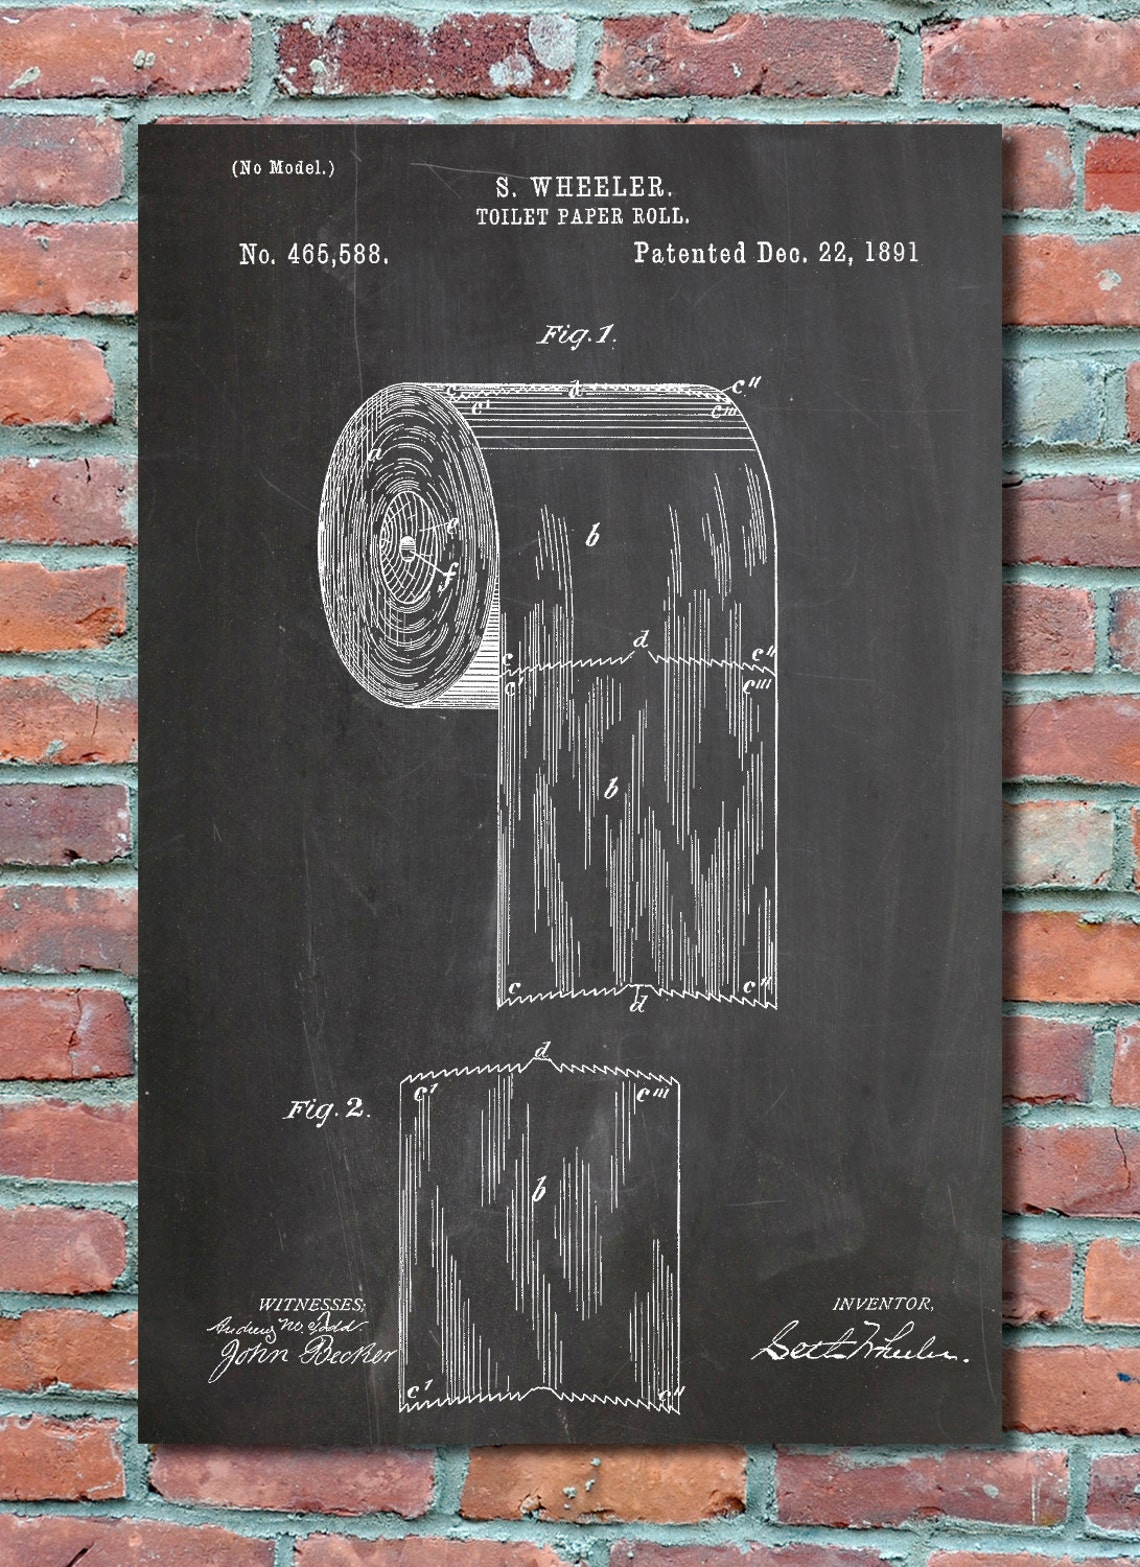 (No Model.)
S. WHEELER.
TOILET PAPER ROLL.
No. 465,588.
Patented Dec. 22, 1891
Fig. 1.
c d c"
c' c'''
a
e
b
f
d
c c"
c' c'''
b
c c"
d
d
c' c'''
Fig. 2.
b
WITNESSES;
INVENTOR,
John Becker
Seth Wheeler.
c' c"